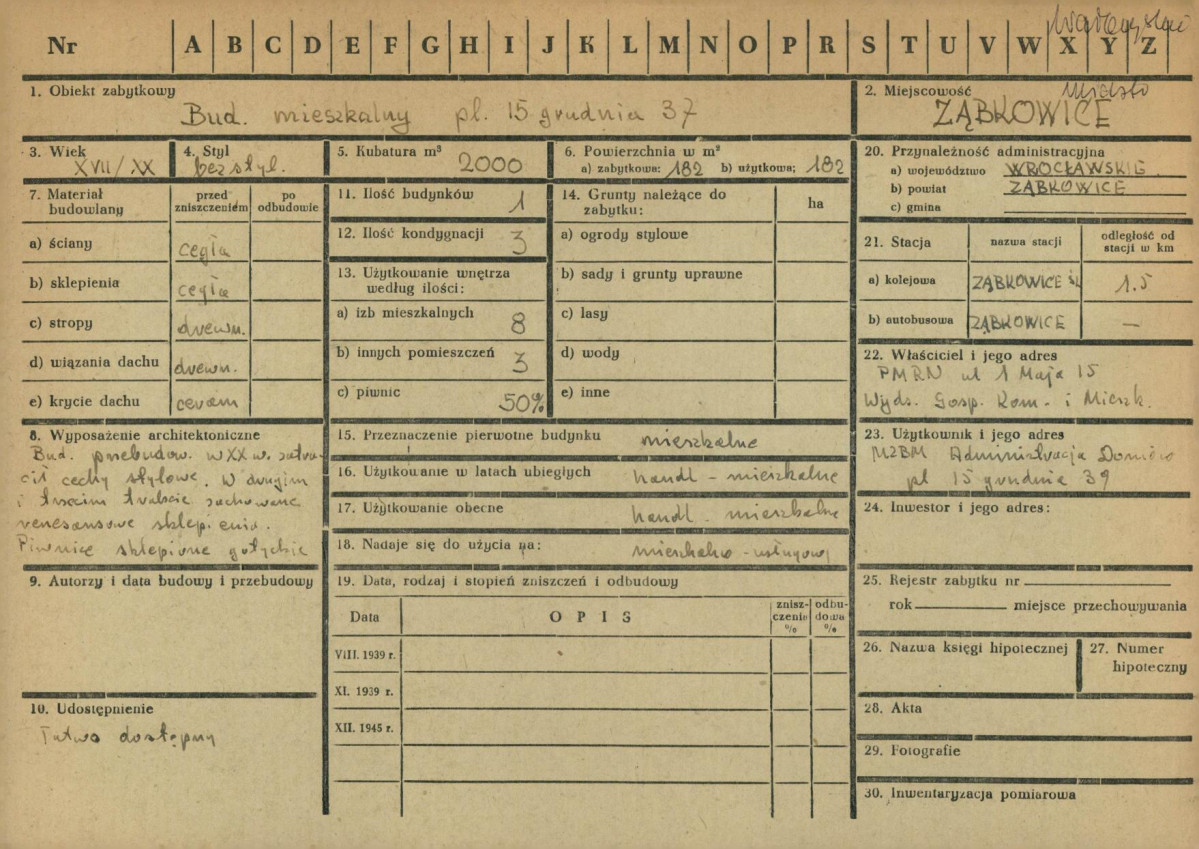 Nr A B C D E F G H I J K L M N O P R S T U V W X Y Z
1. Obiekt zabytkowy
Bud. mieszkalny pl. 15 grudnia 37
2. Miejscowość
miasto
ZĄBKOWICE
3. Wiek
XVII/XX
4. Styl
bezstyl.
5. Kubatura m³
2000
6. Powierzchnia w m²
a) zabytkowa: 182 b) użytkowa; 182
7. Materiał budowlany
przed zniszczeniem
po odbudowie
a) ściany cegła
b) sklepienia cegła
c) stropy drewn.
d) wiązania dachu drewn.
e) krycie dachu ceram
8. Wyposażenie architektoniczne
Bud. przebudow. w XX w. zatra-
cił cechy stylowe. W drugim
i trzecim trakcie zachowane
renesansowe sklepienia.
Piwnice sklepione gotyckie
9. Autorzy i data budowy i przebudowy
10. Udostępnienie
Łatwo dostępny
11. Ilość budynków 1
12. Ilość kondygnacji 3
13. Użytkowanie wnętrza
według ilości:
a) izb mieszkalnych 8
b) innych pomieszczeń 3
c) piwnic 50%
14. Grunty należące do
zabytku:
ha
a) ogrody stylowe
b) sady i grunty uprawne
c) lasy
d) wody
e) inne
15. Przeznaczenie pierwotne budynku mieszkalne
16. Użytkowanie w latach ubiegłych handl - mieszkalne
17. Użytkowanie obecne handl. mieszkalne
18. Nadaje się do użycia na: mieszkalno - usługowy
19. Data, rodzaj i stopień zniszczeń i odbudowy
Data
OPIS
znisz-
czenie
%
odbu-
dowa
%
VIII. 1939 r.
XI. 1939 r.
XII. 1945 r.
20. Przynależność administracyjna
a) województwo WROCŁAWSKIE
b) powiat ZĄBKOWICE
c) gmina
21. Stacja
nazwa stacji
odległość od
stacji w km
a) kolejowa ZĄBKOWICE ŚL 1.5
b) autobusowa ZĄBKOWICE —
22. Właściciel i jego adres
PMRN ul 1 Maja 15
Wydz. Gosp. Kom. i Mieszk.
23. Użytkownik i jego adres
MZBM Administracja Domów
pl 15 grudnia 39
24. Inwestor i jego adres:
25. Rejestr zabytku nr
rok miejsce przechowywania
26. Nazwa księgi hipotecznej
27. Numer
hipoteczny
28. Akta
29. Fotografie
30. Inwentaryzacja pomiarowa